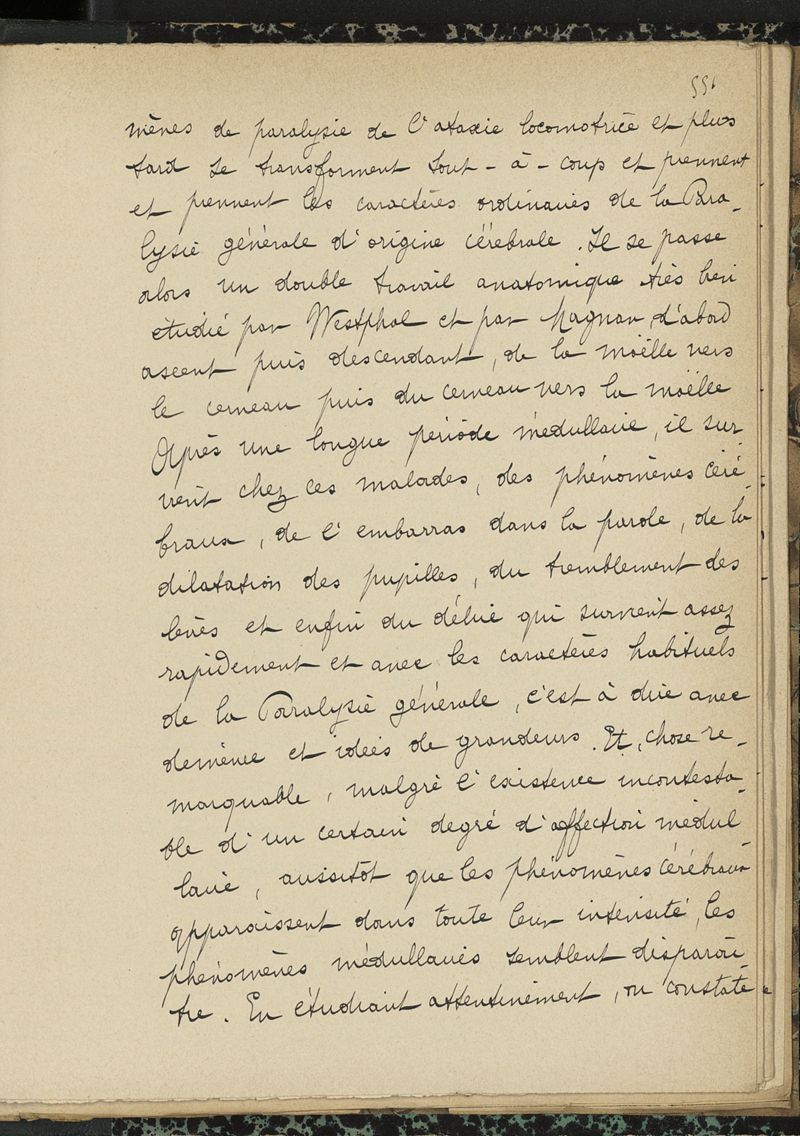 551
mènes de paralysie de l'ataxie locomotrice et plus
tard se transforment tout-à-coup et prennent
et prennent les caractères ordinaires de la Para-
lysie générale d'origine cérébrale. Il se passe
alors un double travail anatomique très bien
étudié par Westphal et par Magnan, d'abord
ascent puis descendant, de la moëlle vers
le cerveau puis du cerveau vers la moëlle
Après une longue période médullaire, il sur
vient chez ces malades, des phénomènes céré-
braux, de l'embarras dans la parole, de la
dilatation des pupilles, du tremblement des
lèvres et enfin du délire qui survient assez
rapidement et avec les caractères habituels
de la Parralysie générale, c'est à dire avec
démence et idées de grandeurs. Et, chose re-
marquable, malgré l'existence incontesta-
ble d'un certain degré d'affection médul
laire, aussitôt que les phénomènes cérébraux
apparaissent dans toute leur intensité, les
phénomènes médullaires semblent disparaî-
tre. En étudiant attentivement, on constate